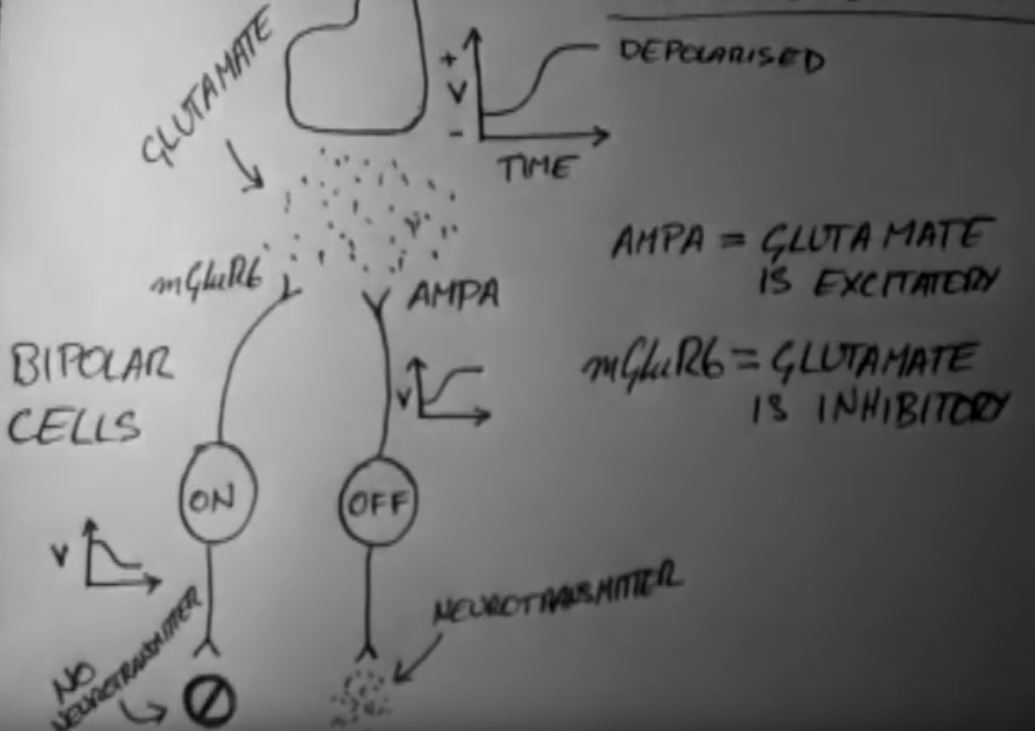 GLUTAMATE
+
V
-
DEPOLARISED
TIME
AMPA = GLUTAMATE
IS EXCITATORY
mGluR6
AMPA
mGluR6 = GLUTAMATE
IS INHIBITORY
BIPOLAR
CELLS
V
ON
OFF
V
NEUROTRANSMITTER
NO
NEUROTRANSMITTER